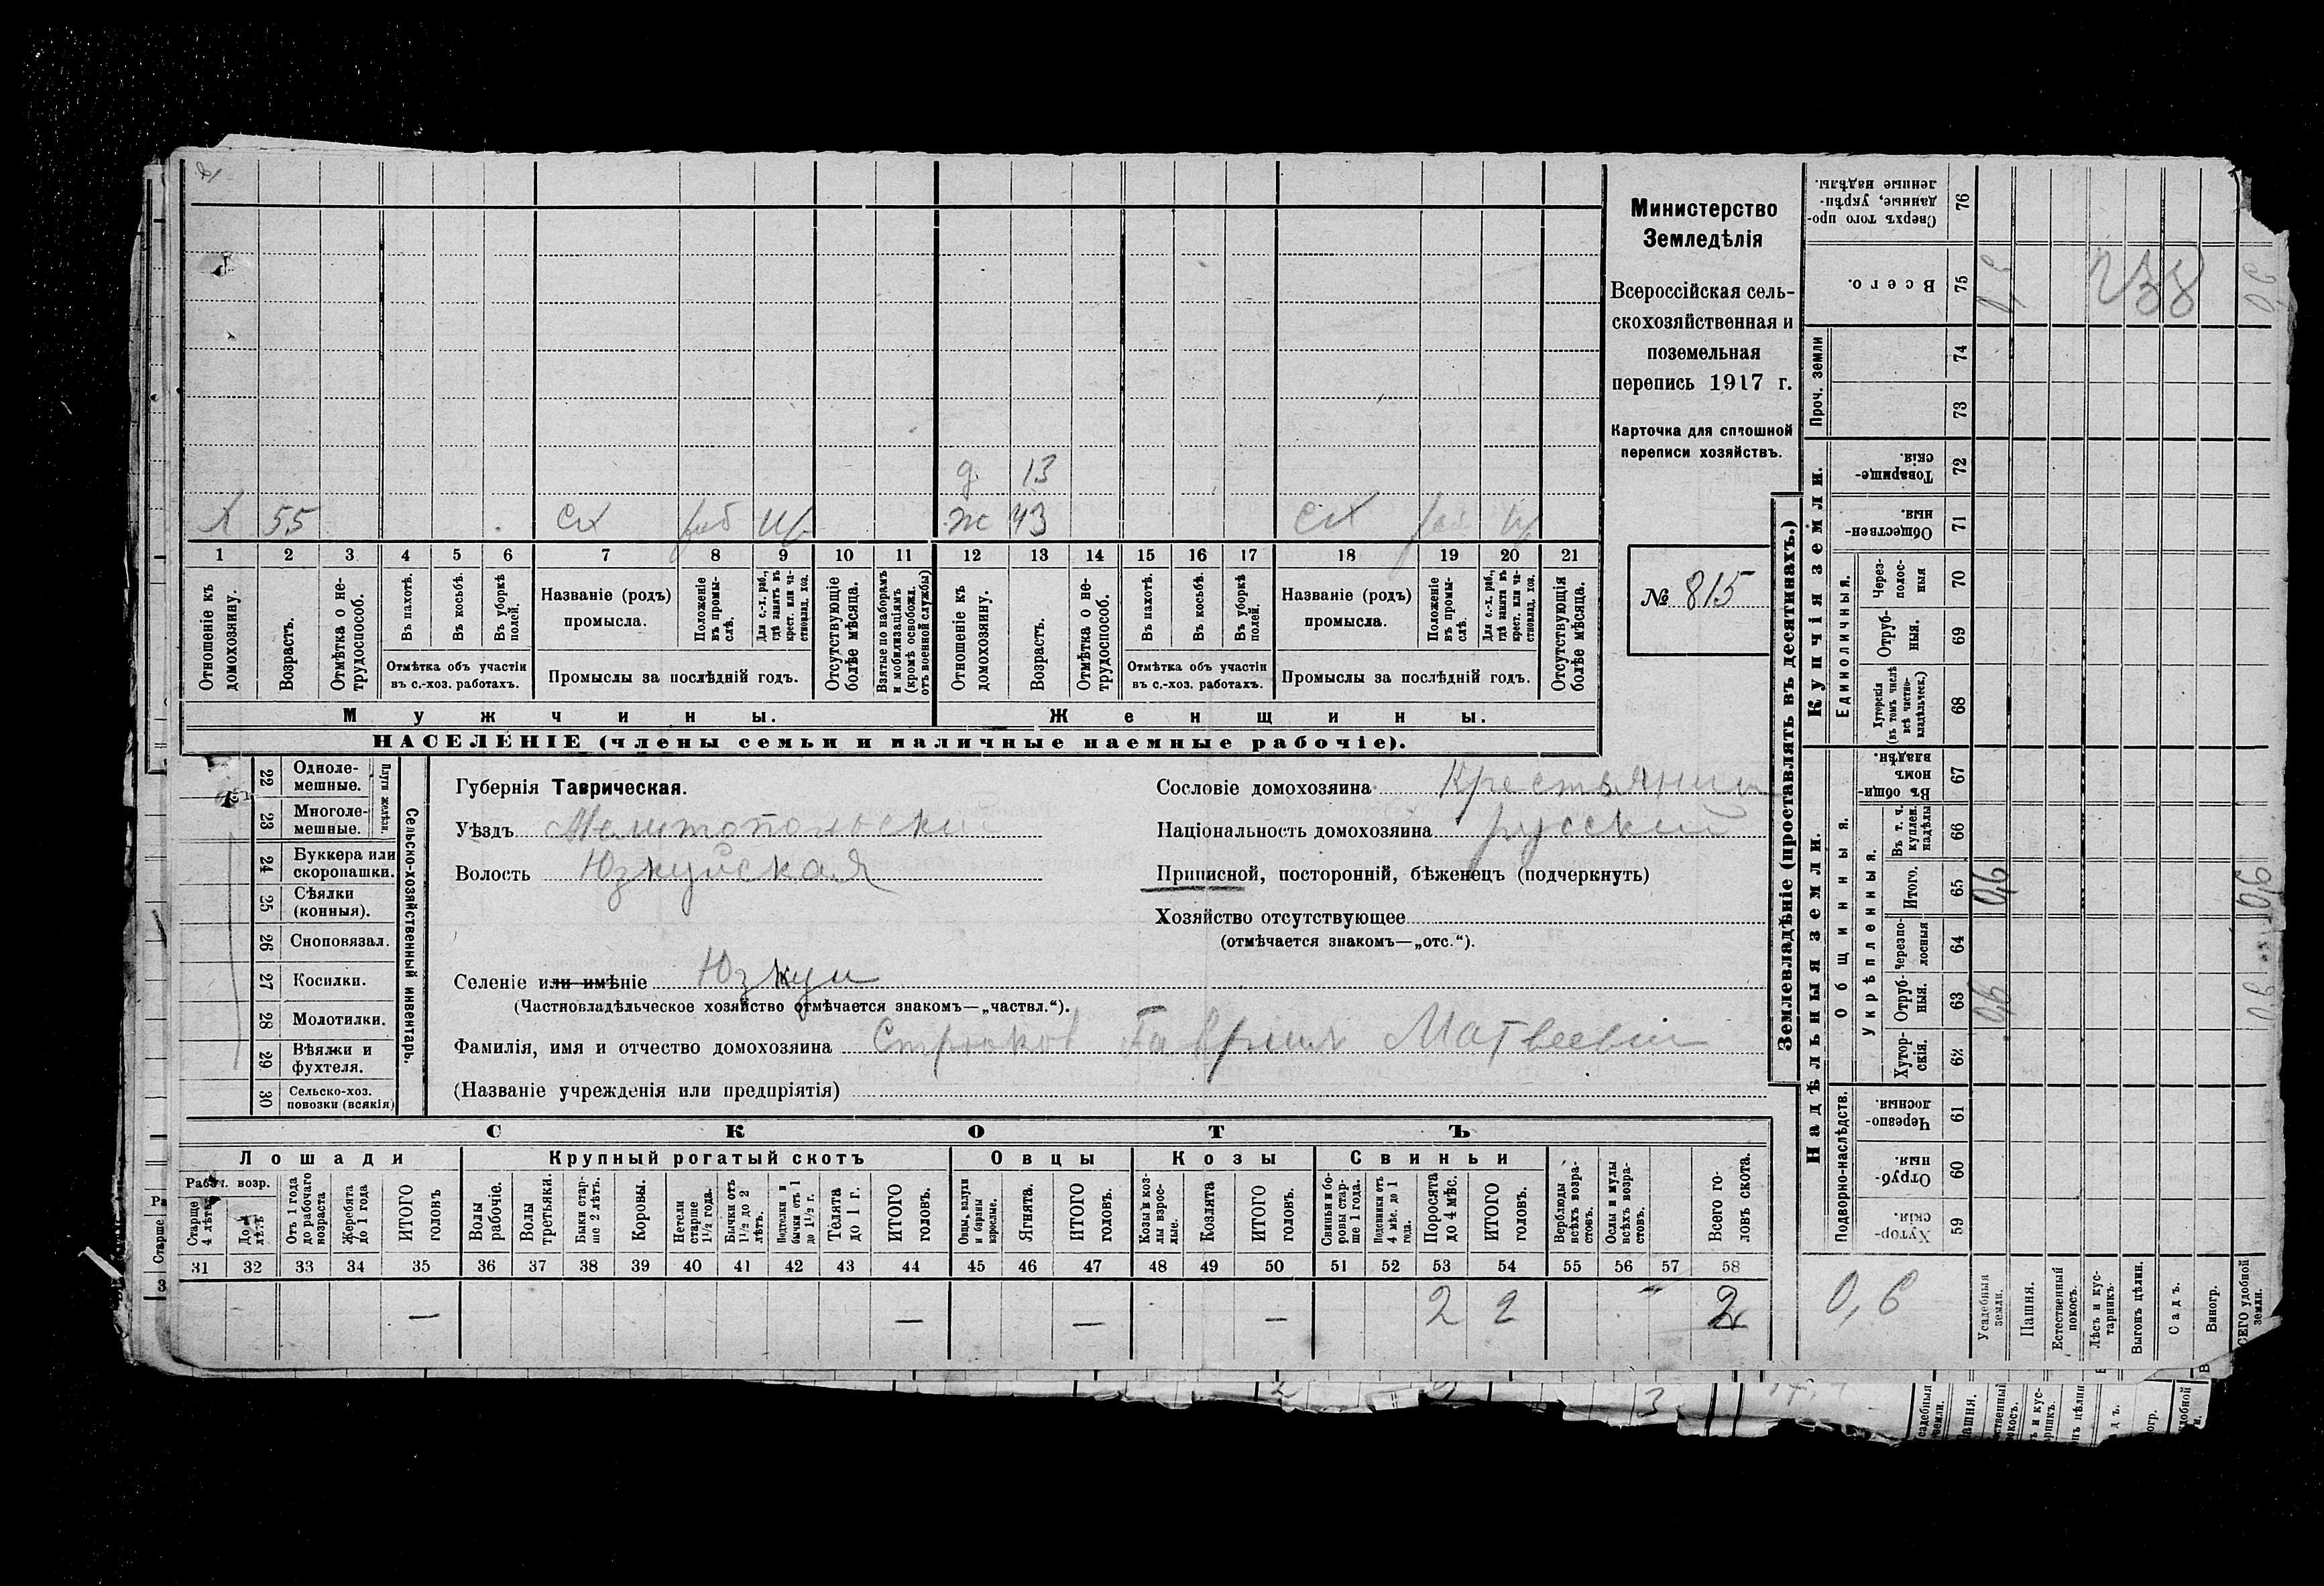 д. 13
х 55 сх раб ч ж 43 сх ч
1 2 3 4 5 6 7 8 9 10 11 12 13 14 15 16 17 18 19 20 21
Отношеніе къ домохозяину.
Возрастъ.
Отмѣтка о не-
трудоспособ.
Въ пахотѣ.
Въ косьбѣ.
Въ уборкѣ
полей.
Отмѣтка объ участіи
въ с.-хоз. работахъ.
Названіе (родъ)
промысла.
Положеніе
въ промы-
слѣ.
Для с.-х. раб.,
гдѣ занятъ въ
крест. или ча-
стновлад. хоз.
Промыслы за послѣдній годъ.
Отсутствующіе
болѣе мѣсяца.
Взятые по наборамъ
и мобилизаціямъ
(кромѣ освобожд.
отъ военной службы)
Отношеніе къ
домохозяину.
Возрастъ.
Отмѣтка о не-
трудоспособ.
Въ пахотѣ.
Въ косьбѣ.
Въ уборкѣ
полей.
Отмѣтка объ участіи
въ с.-хоз. работахъ.
Названіе (родъ)
промысла.
Положеніе
въ промы-
слѣ.
Для с.-х. раб.,
гдѣ занята въ
крест. или ча-
стновлад. хоз.
Промыслы за послѣдній годъ.
Отсутствующія
болѣе мѣсяца.
Мужчины.
Женщины.
НАСЕЛЕНІЕ (члены семьи и наличные наемные рабочіе).
Министерство
Земледѣлія
Всероссійская сель-
скохозяйственная и
поземельная
перепись 1917 г.
Карточка для сплошной
переписи хозяйствъ.
№ 815
22 Одноле-
мешные.
23 Многоле-
мешные.
Плуги желѣзн.
24 Буккера или
скоропашки.
25 Сѣялки
(конныя).
26 Сноповязал.
27 Косилки.
28 Молотилки.
29 Вѣялки и
фухтеля.
30 Сельско-хоз.
повозки (всякія)
Сельско-хозяйственный инвентарь.
Губернія Таврическая.
Уѣздъ Мелитопольский
Волость Юзкуйская
Селеніе или имѣніе Юзкуи
(Частновладѣльческое хозяйство отмѣчается знакомъ—„частвл.“).
Фамилія, имя и отчество домохозяина Строков Гавриил Матвеевич
(Названіе учрежденія или предпріятія)
Сословіе домохозяина Крестьянин
Національность домохозяина русский
Приписной, посторонній, бѣженецъ (подчеркнуть)
Хозяйство отсутствующее
(отмѣчается знакомъ—„отс.“).
СКОТЪ
Лошади
Крупный рогатый скотъ
Овцы
Козы
Свиньи
Рабоч. возр.
Старше
4 лѣтъ
До 4
лѣтъ
Отъ 1 года
до рабочаго
возраста
Жеребята
до 1 года
ИТОГО
головъ
Волы
рабочіе.
Волы
третьяки.
Быки стар-
ше 2 лѣтъ.
Коровы.
Нетели
старше
1½ года.
Бычки отъ
1½ до 2
лѣтъ.
Подтелки и
бычки отъ 1
до 1½ г.
Телята
до 1 г.
ИТОГО
головъ.
Овцы, валухи
и бараны
взрослые.
Ягнята.
ИТОГО
головъ.
Козы и коз-
лы взрос-
лые.
Козлята
ИТОГО
головъ.
Свиньи и бо-
ровы стар-
ше 1 года.
Подсвинки отъ
4 мѣс. до 1
года.
Поросята
до 4 мѣс.
ИТОГО
головъ.
Верблюды
всѣхъ возра-
стовъ.
Ослы и мулы
всѣхъ возра-
стовъ.
Всего го-
ловъ скота.
31 32 33 34 35 36 37 38 39 40 41 42 43 44 45 46 47 48 49 50 51 52 53 54 55 56 57 58
— — — — 2 2 2
Землевладѣніе (проставлять въ десятинахъ.)
Надѣльныя земли.
Купчія земли.
Проч. земли
Сверхъ того про-
данные, укрѣп-
ленные надѣлы.
76
Всего.
75
74
73
Товарище-
скія.
72
Обществен-
ныя.
71
Единоличныя.
Через-
полос-
ныя
70
Отруб-
ныя.
69
Хуторскія
(въ томъ числѣ
всѣ частно-
владѣльческ.)
68
Общинныя.
Въ общин-
номъ
владѣн.
67
Укрѣпленныя.
Въ т. ч.
куплен.
надѣлы
66
Итого.
65
Черезпо-
лосныя
64
Отруб-
ныя.
63
Хутор-
скія.
62
Подворно-наслѣдств.
Черезпо-
лосныя.
61
Отруб-
ныя.
60
Хутор-
скія.
59
0,6
0,6
0,6
0,6
0,6
0,6
238
0,6
Усадебныя
земли.
Пашня.
Естественный
покосъ.
Лѣсъ и кус-
тарникъ.
Выгонъ цѣлин.
Садъ.
Виногр.
ВСЕГО удобной
земли.